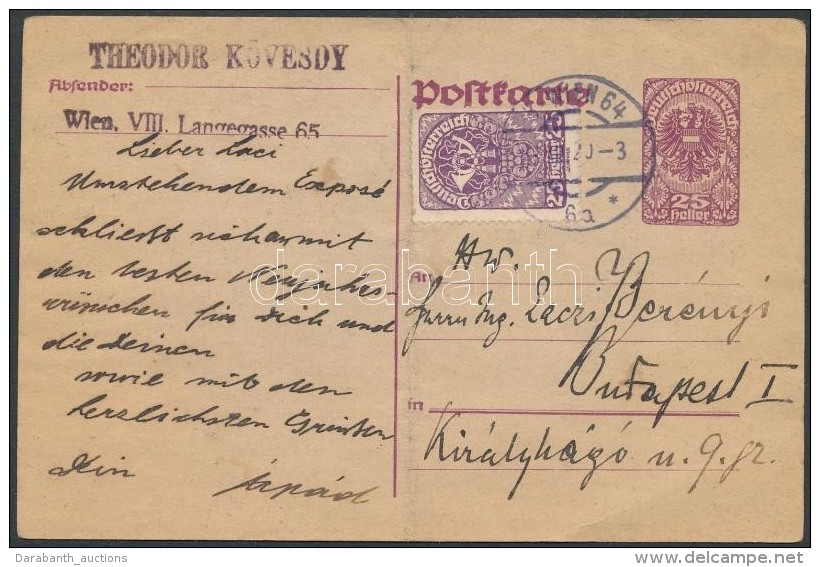 THEODOR KÖVESDY
Absender:
Wien, VIII. Langegasse 65
Lieber Laci
Umstehendem Exposé
schließt sich mit
den besten Neujahrs-
wünschen für Dich und
die Deinen
sowie mit den
herzlichsten Grüssen
Dein
Árpád
Postkarte
WIEN 64
20-3
6b *
Deutschösterreich
25
heller
Deutschösterreich
25
heller
An
Hw.
Herrn Ing. Laczi Berényi
Budapest I
in
Királyhágó u. 9. fz.
darabanth
Darabanth_auctions
www.delcampe.net